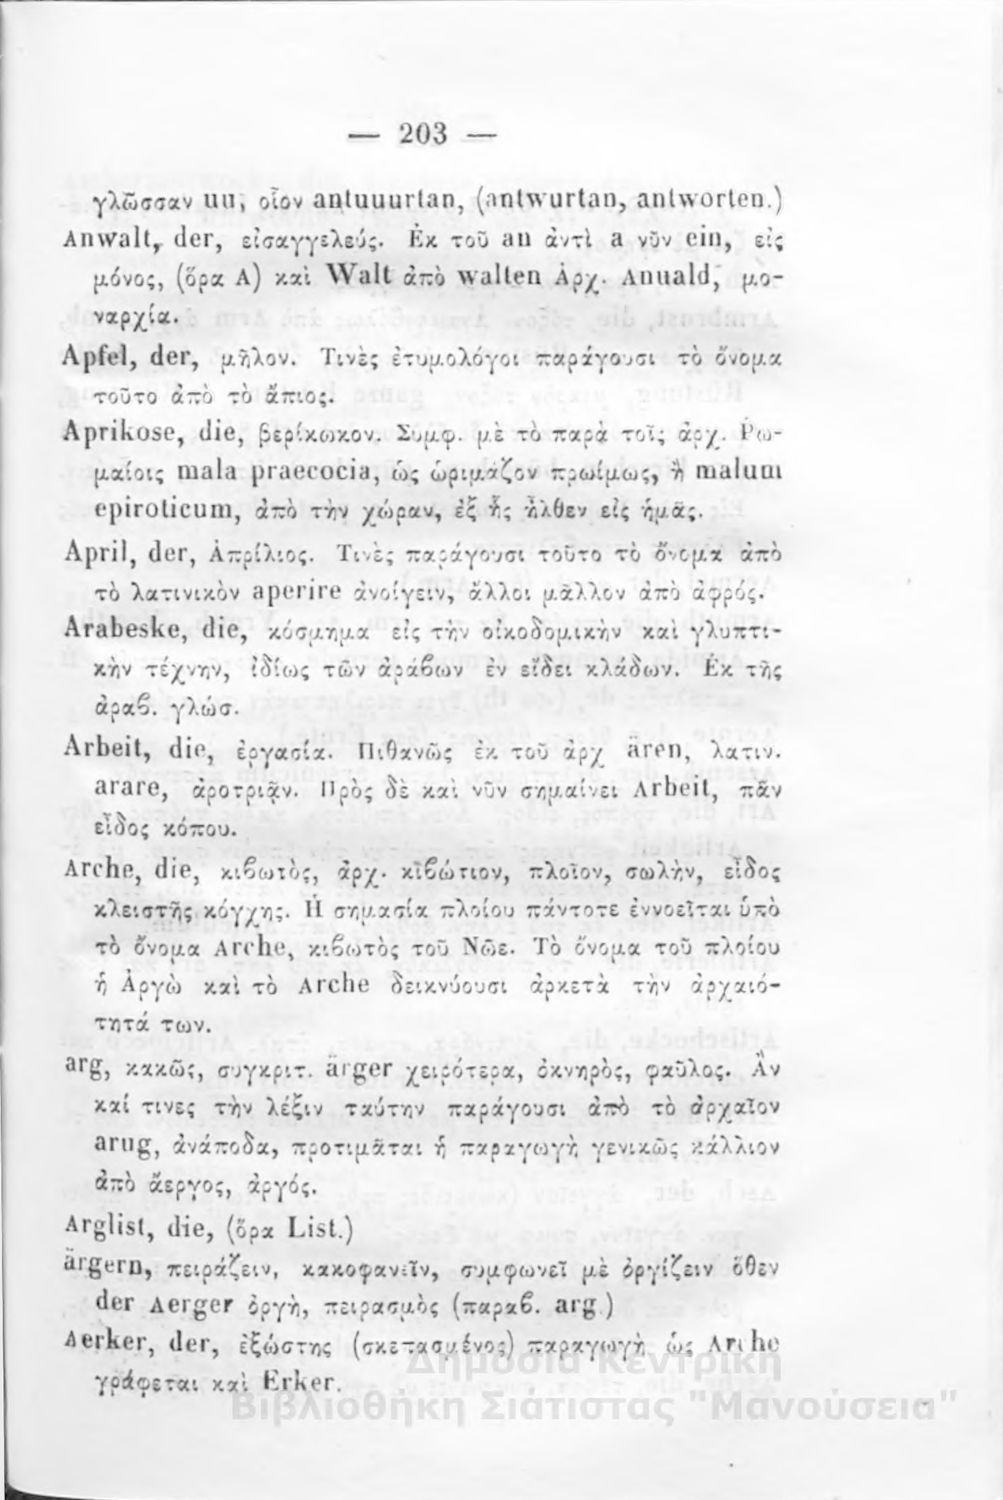 — 203 —
γλῶσσαν uu, οἷον antuuurtan, (antwurtan, antworten.)
Anwalt, der, εἰσαγγελεύς. Ἐκ τοῦ an ἀντὶ a νῦν ein, εἷς
μόνος, (ὅρα A) καὶ Walt ἀπὸ walten Ἀρχ. Anuald, μο-
ναρχία.
Apfel, der, μῆλον. Τινὲς ἐτυμολόγοι παράγουσι τὸ ὄνομα
τοῦτο ἀπὸ τὸ ἄπιος.
Aprikose, die, βερίκωκον. Συμφ. μὲ τὸ παρὰ τοῖς ἀρχ. Ῥω-
μαίοις mala praecocia, ὡς ὡριμάζον πρωίμως, ἢ malum
epiroticum, ἀπὸ τὴν χώραν, ἐξ ἧς ἦλθεν εἰς ἡμᾶς.
April, der, Ἀπρίλιος. Τινὲς παράγουσι τοῦτο τὸ ὄνομα ἀπὸ
τὸ λατινικὸν aperire ἀνοίγειν, ἄλλοι μᾶλλον ἀπὸ ἀφρός.
Arabeske, die, κόσμημα εἰς τὴν οἰκοδομικὴν καὶ γλυπτι-
κὴν τέχνην, ἰδίως τῶν ἀράβων ἐν εἴδει κλάδων. Ἐκ τῆς
ἀραβ. γλώσ.
Arbeit, die, ἐργασία. Πιθανῶς ἐκ τοῦ ἀρχ ären, λατιν.
arare, ἀροτριᾷν. Πρὸς δὲ καὶ νῦν σημαίνει Arbeit, πᾶν
εἶδος κόπου.
Arche, die, κιβωτὸς, ἀρχ. κιβώτιον, πλοῖον, σωλὴν, εἶδος
κλειστῆς κόγχης. Ἡ σημασία πλοίου πάντοτε ἐννοεῖται ὑπὸ
τὸ ὄνομα Arche, κιβωτὸς τοῦ Νῶε. Τὸ ὄνομα τοῦ πλοίου
ἡ Ἀργὼ καὶ τὸ Arche δεικνύουσι ἀρκετὰ τὴν ἀρχαιό-
τητά των.
arg, κακῶς, συγκριτ. ärger χειρότερα, ὀκνηρὸς, φαῦλος. Ἂν
καί τινες τὴν λέξιν ταύτην παράγουσι ἀπὸ τὸ ἀρχαῖον
arug, ἀνάποδα, προτιμᾶται ἡ παραγωγὴ γενικῶς κάλλιον
ἀπὸ ἄεργος, ἀργός.
Arglist, die, (ὅρα List.)
ärgern, πειράζειν, κακοφανεῖν, συμφωνεῖ μὲ ὀργίζειν ὅθεν
der Aerger ὀργὴ, πειρασμὸς (παραβ. arg.)
Aerker, der, ἐξώστης (σκεπασμένος) παραγωγὴ ὡς Arche
γράφεται καὶ Erker.
Δημόσια Κεντρική
Βιβλιοθήκη Σιάτιστας "Μανούσεια"